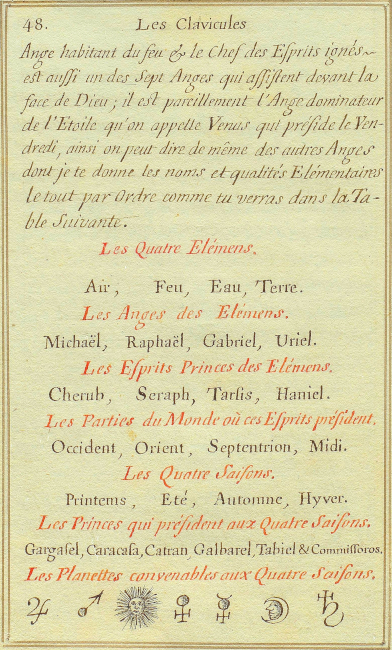 48. Les Clavicules
Ange habitant du feu & le Chef des Esprits ignés
est aussi un des Sept Anges qui assistent devant la
face de Dieu ; il est pareillement l'Ange dominateur
de l'Etoile qu'on appelle Venus qui préside le Ven-
dredi, ainsi on peut dire de même des autres Anges
dont je te donne les noms et qualités Elémentaires
le tout par Ordre comme tu verras dans la Ta-
ble Suivante.
Les Quatre Elémens.
Air, Feu, Eau, Terre.
Les Anges des Elémens.
Michaël, Raphaël, Gabriel, Uriel.
Les Esprits Princes des Elémens.
Cherub, Seraph, Tarsis, Haniel.
Les Parties du Monde où ces Esprits président.
Occident, Orient, Septentrion, Midi.
Les Quatre Saisons.
Printems, Eté, Automne, Hyver.
Les Princes qui président aux Quatre Saisons.
Gargasel, Caracasa, Catran, Galbarel, Tabiel & Commissoros.
Les Planettes convenables aux Quatre Saisons.
♃ ♂ ☉ ♀ ☿ ☽ ♄